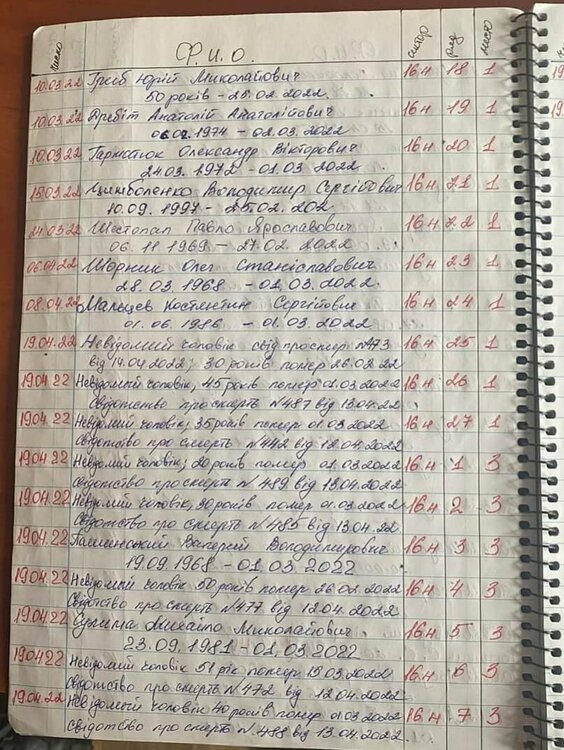 число Ф.И.О. сектор ряд место
10.03.22 Гриб Юрій Миколайович 16н 18 1
50 років - 25.02.2022
10.03.22 Анатолій Анатолійович 16н 19 1
06.02.1974 - 02.03.2022
10.03.22 Олександр Вікторович 16н 20 1
24.03.1972 - 01.03.2022
15.03.22 Цимболенко Володимир Сергійович 16н 21 1
10.09.1997 - 25.02.202
24.03.22 Шестопал Павло Ярославович 16н 22 1
06.11 1969 - 27.02 2022
06.04.22 Шорник Олег Станіславович 16н 23 1
28.03.1968 - 02.03.2022
08.04.22 Мальцев Костянтин Сергійович 16н 24 1
01.06.1986 - 01.03.2022
19.04.22 Невідомий чоловік свід про смер №473 16н 25 1
від 14.04.2022; 30 років помер 26.02.22
19.04.22 Невідомий чоловік, 45 років помер 01.03.2022 16н 26 1
Свідотство про смерть №487 від 13.04.22
19.04.22 Невідомий чоловік, 35 років помер 01.03.2022 16н 27 1
свідотство про смерть №442 від 12.04.2022
19.04.22 Невідомий чоловік, 20 років помер 01.03.2022 16н 1 3
свідотство про смерть №489 від 13.04.2022
19.04.22 Невідомий чоловік, 30 років помер 01.03.2022 16н 2 3
Свідотство про смерть №485 від 13.04.22
19.04.22 Валерій Володимирович 16н 3 3
19.09.1968 - 01.03.2022
19.04.22 Невідомый чоловік 50 років помер 26.02.2022 16н 4 3
Свідотство про смерть №477 від 12.04.2022
19.04.22 Сулима Михайло Миколайович 16н 5 3
23.09.1981 - 01.03.2022
19.04.22 Невідомий чоловік 51 рік помер 15.03.2022 16н 6 3
свідотство про смерть №472 від 12.04.2022
19.04.22 Невідомый чоловік 40 років помер 01.03.2022 16н 7 3
свідотство про смерть №488 від 13.04.2022